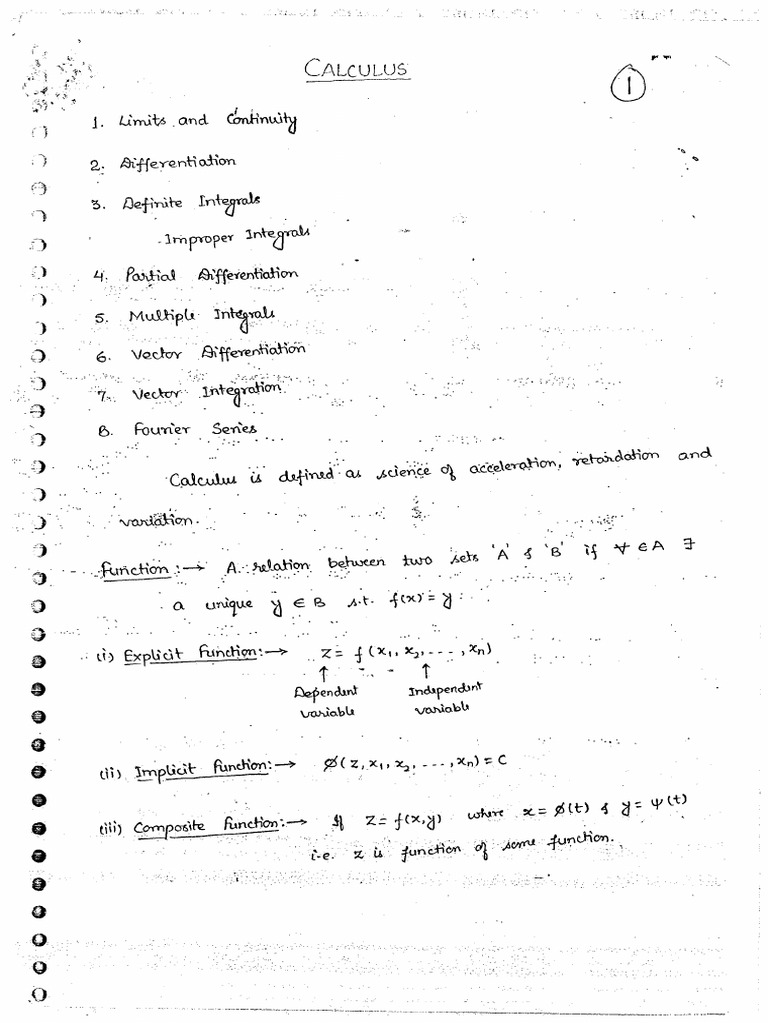 CALCULUS
1
1. Limits and Continuity
2. Differentiation
3. Definite Integrals
Improper Integrals
4. Partial Differentiation
5. Multiple Integrals
6. Vector Differentiation
7. Vector Integration
8. Fourier Series
Calculus is defined as science of acceleration, retardation and
variation.
Function :→ A relation between two sets 'A' & 'B' if ∀ ∈ A ∃
a unique y ∈ B s.t. f(x) = y.
(i) Explicit Function:→ z = f(x₁, x₂, ..., xₙ)
↑ ↑
Dependent Independent
variable variable
(ii) Implicit Function:→ φ(z, x₁, x₂, ..., xₙ) = C
(iii) Composite Function:→ If z = f(x,y) where x = φ(t) & y = ψ(t)
i.e. z is function of some function.